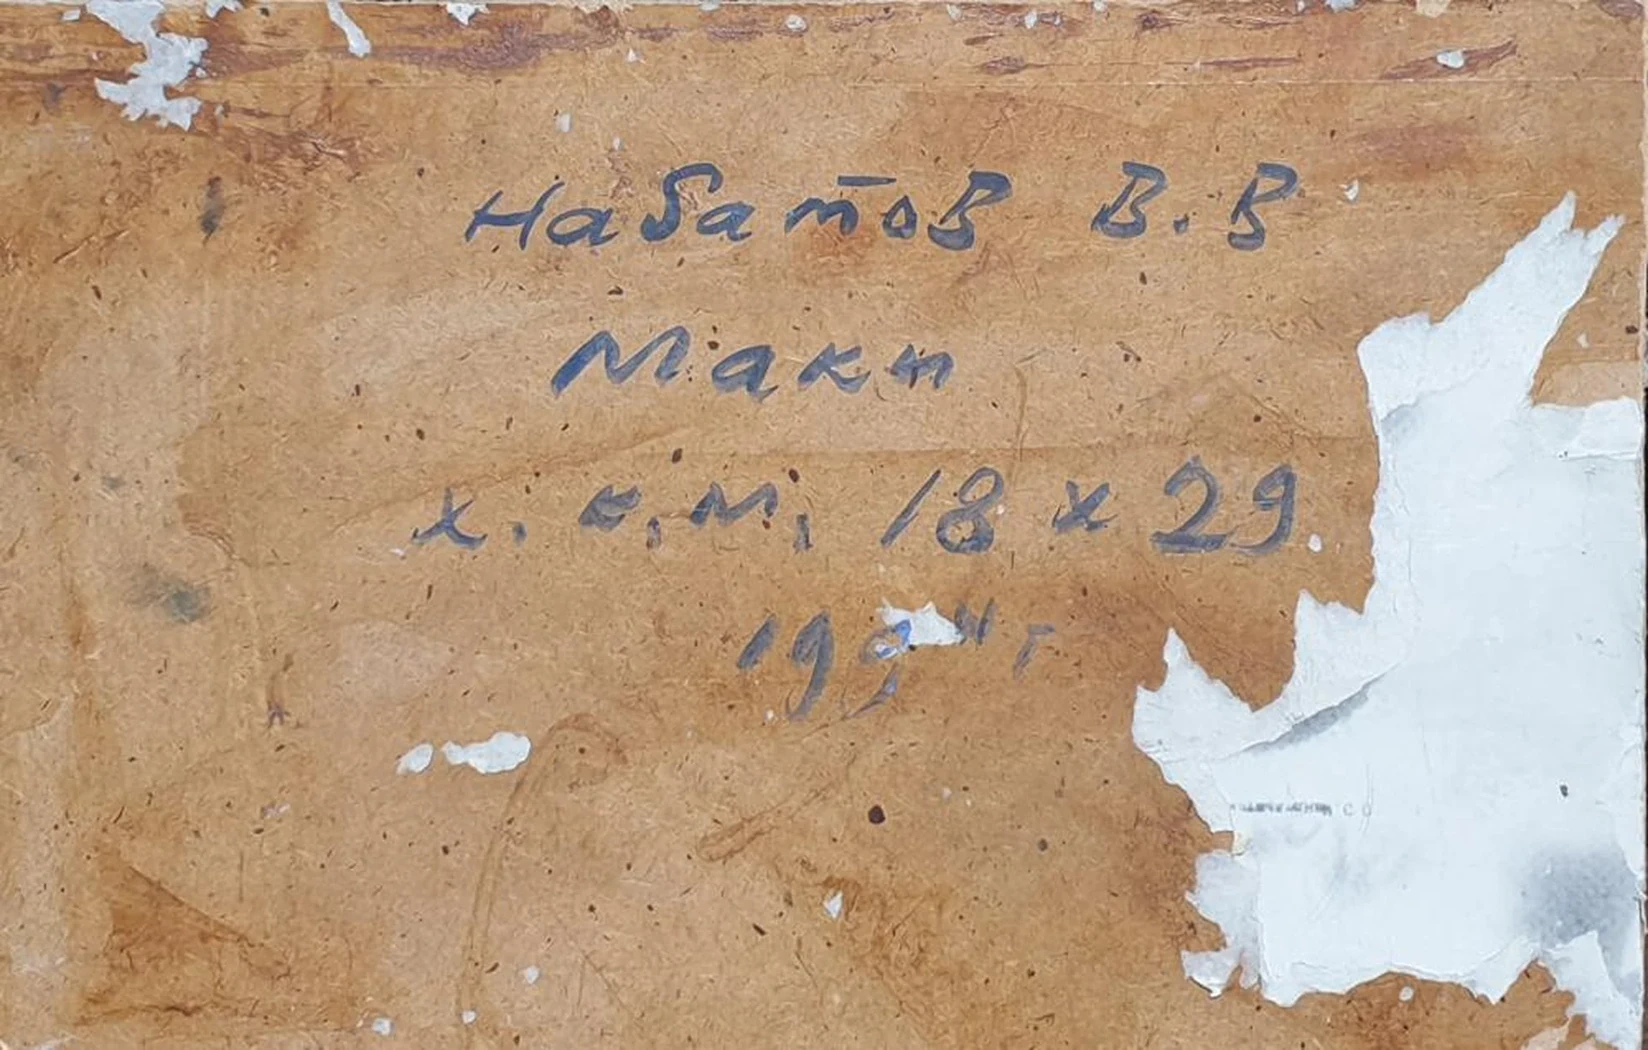 Набатов В.В
Маки
х.к.м. 18 х 29
1994 г
со